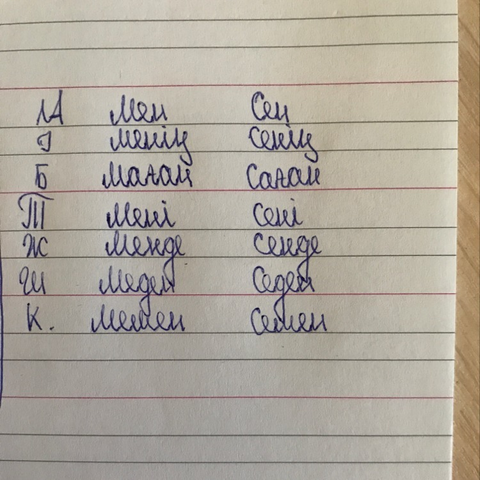 А Мен Сен
І менің Сенің
Б Маған Саған
Т Мені Сені
Ж Менде Сенде
Ш Меден Седен
К. Мемен Семен